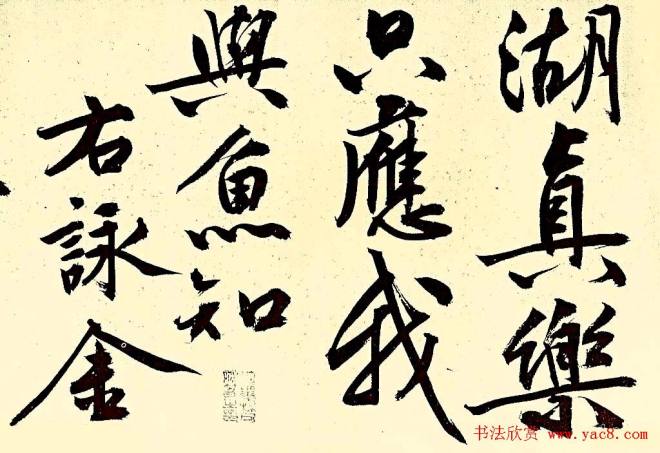 湖真樂
只應我
與魚知
右詠金
书法欣赏 www.yac8.com